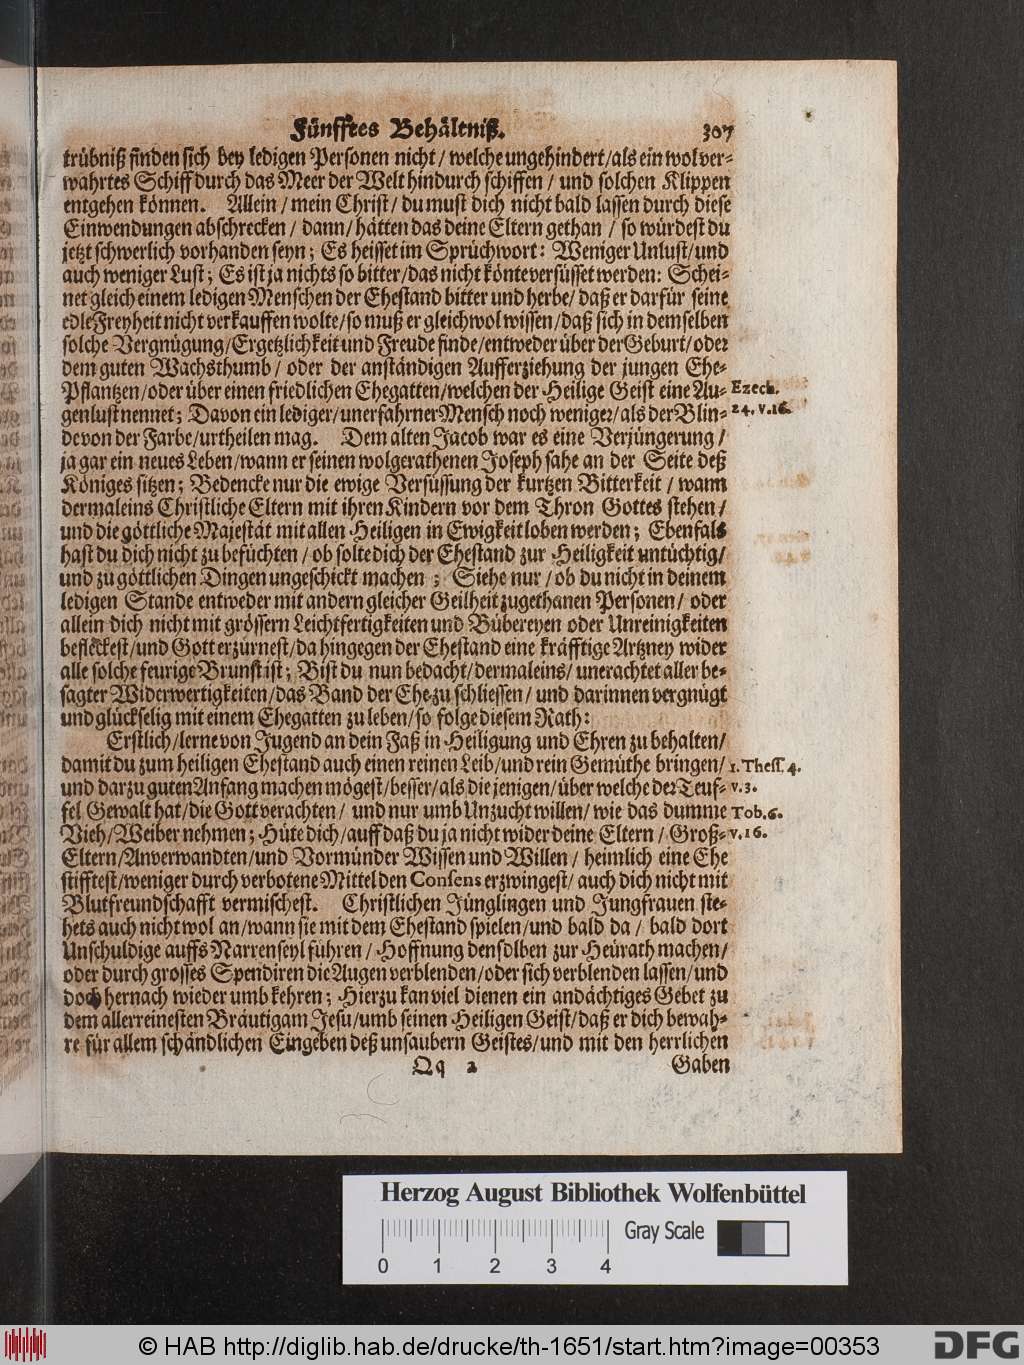 Fünfftes Behältniß. 307
trübniß finden sich bey ledigen Personen nicht/ welche ungehindert/als ein wol ver-
wahrtes Schiff durch das Meer der Welt hindurch schiffen/ und solchen Klippen
entgehen können. Allein/ mein Christ/ du must dich nicht bald lassen durch diese
Einwendungen abschrecken/ dann/ hätten das deine Eltern gethan/ so würdest du
jetzt schwerlich vorhanden seyn; Es heisset im Sprüchwort: Weniger Unlust/ und
auch weniger Lust; Es ist ja nichts so bitter/das nicht könte versüsset werden: Schei-
net gleich einem ledigen Menschen der Ehestand bitter und herbe/ daß er darfür seine
edle Freyheit nicht verkauffen wolte/so muß er gleichwol wissen/daß sich in demselben
solche Vergnügung/Ergetzlichkeit und Freude finde/entweder über der Geburt/oder
dem guten Wachsthumb/ oder der anständigen Aufferziehung der jungen Ehe-
Pflantzen/oder über einen friedlichen Ehegatten/welchen der Heilige Geist eine Au-
Ezech.
genlust nennet; Davon ein lediger/unerfahrner Mensch noch weniger/als der Blin-
24. v.16.
de von der Farbe/urtheilen mag. Dem alten Jacob war es eine Verjüngerung/
ja gar ein neues Leben/wann er seinen wolgerathenen Joseph sahe an der Seite deß
Königes sitzen; Bedencke nur die ewige Versüssung der kurtzen Bitterkeit/ wann
dermaleins Christliche Eltern mit ihren Kindern vor dem Thron Gottes stehen/
und die göttliche Majestät mit allen Heiligen in Ewigkeit loben werden; Ebenfals
hast du dich nicht zu befüchten/ ob solte dich der Ehestand zur Heiligkeit untüchtig/
und zu göttlichen Dingen ungeschickt machen; Siehe nur/ ob du nicht in deinem
ledigen Stande entweder mit andern gleicher Geilheit zugethanen Personen/ oder
allein dich nicht mit grössern Leichtfertigkeiten und Bübereyen oder Unreinigkeiten
befleckest/und Gott erzürnest/da hingegen der Ehestand eine kräfftige Artzney wider
alle solche feurige Brunst ist; Bist du nun bedacht/dermaleins/ unerachtet aller be-
sagter Widerwertigkeiten/das Band der Ehe zu schliessen/ und darinnen vergnügt
und glückselig mit einem Ehegatten zu leben/so folge diesem Rath:
Erstlich/lerne von Jugend an dein Faß in Heiligung und Ehren zu behalten/
damit du zum heiligen Ehestand auch einen reinen Leib/und rein Gemüthe bringen/
1. Thess. 4.
und darzu guten Anfang machen mögest/besser/als die jenigen/über welche der Teuf-
v.3.
fel Gewalt hat/die Gott verachten/ und nur umb Unzucht willen/ wie das dumme
Tob.6.
Vieh/Weiber nehmen; Hüte dich/auff daß du ja nicht wider deine Eltern/ Groß-
v.16.
Eltern/Anverwandten/und Vormünder Wissen und Willen/ heimlich eine Ehe
stifftest/weniger durch verbotene Mittel den Consens erzwingest/ auch dich nicht mit
Blutfreundschafft vermischest. Christlichen Jünglingen und Jungfrauen ste-
hets auch nicht wol an/wann sie mit dem Ehestand spielen/und bald da/ bald dort
Unschuldige auffs Narrenseyl führen/ Hoffnung denselben zur Heürath machen/
oder durch grosses Spendiren die Augen verblenden/oder sich verblenden lassen/und
doch hernach wieder umbkehren; Hierzu kan viel dienen ein andächtiges Gebet zu
dem allerreinesten Bräutigam Jesu/umb seinen Heiligen Geist/daß er dich bewah-
re für allem schändlichen Eingeben deß unsaubern Geistes/und mit den herrlichen
Qq 2 Gaben
Herzog August Bibliothek Wolfenbüttel
Gray Scale
0 1 2 3 4
© HAB http://diglib.hab.de/drucke/th-1651/start.htm?image=00353
DFG